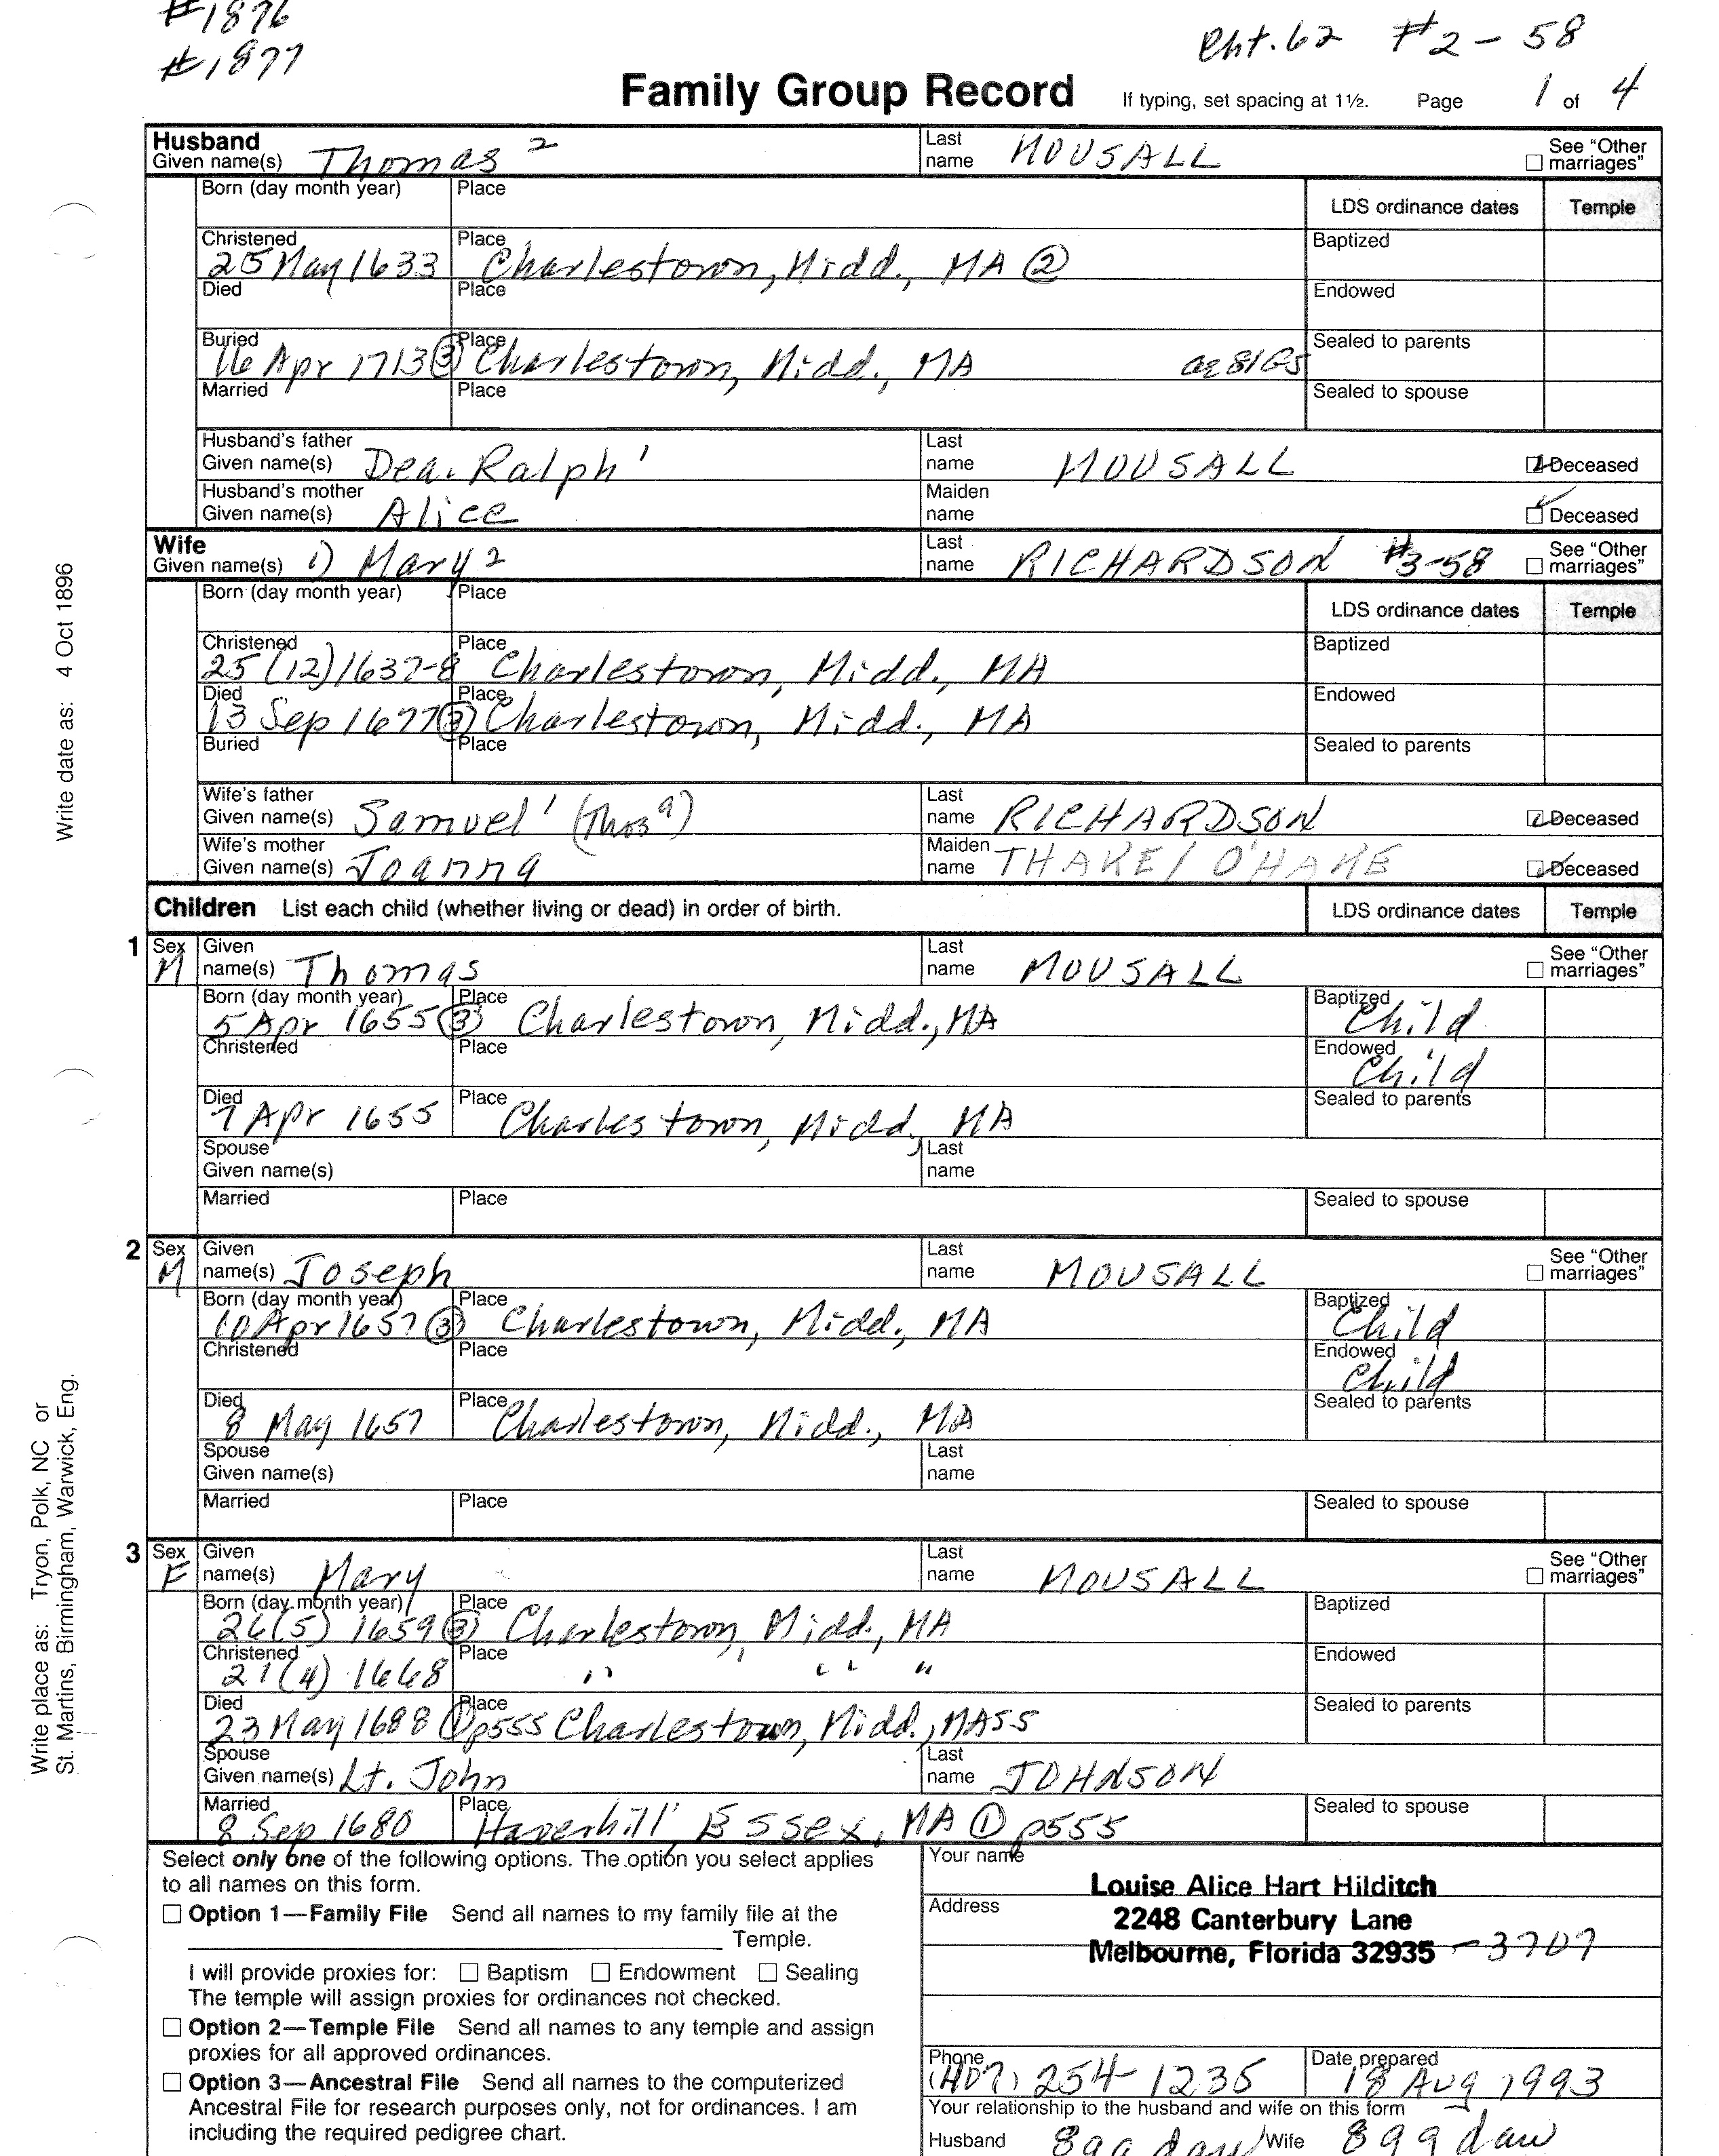 #1876
#1877
Cht. 62 #2-58
Family Group Record If typing, set spacing at 1½. Page 1 of 4
Husband
Given name(s) Thomas 2 Last name MOUSALL See "Other marriages"
Born (day month year) Place LDS ordinance dates Temple
Christened 25 May 1633 Place Charlestown, Midd., MA ② Baptized
Died Place Endowed
Buried 16 Apr 1713 ③ Place Charlestown, Midd., MA ae 81 G5 Sealed to parents
Married Place Sealed to spouse
Husband's father Given name(s) Dea. Ralph 1 Last name MOUSALL Deceased
Husband's mother Given name(s) Alice Maiden name Deceased
Wife
Given name(s) 1) Mary 2 Last name RICHARDSON #3-58 See "Other marriages"
Born (day month year) Place LDS ordinance dates Temple
Christened 25 (12) 1637-8 Place Charlestown, Midd., MA Baptized
Died 13 Sep 1677 ③ Place Charlestown, Midd., MA Endowed
Buried Place Sealed to parents
Wife's father Given name(s) Samuel 1 (Thos a) Last name RICHARDSON Deceased
Wife's mother Given name(s) Joanna Maiden name THAKE / O'HAKE Deceased
Children List each child (whether living or dead) in order of birth. LDS ordinance dates Temple
1 Sex M Given name(s) Thomas Last name MOUSALL See "Other marriages"
Born (day month year) 5 Apr 1655 ③ Place Charlestown, Midd., MA Baptized Child
Christened Place Endowed Child
Died 7 Apr 1655 Place Charlestown, Midd, MA Sealed to parents
Spouse Given name(s) Last name
Married Place Sealed to spouse
2 Sex M Given name(s) Joseph Last name MOUSALL See "Other marriages"
Born (day month year) 10 Apr 1657 ③ Place Charlestown, Midd., MA Baptized Child
Christened Place Endowed Child
Died 8 May 1657 Place Charlestown, Midd., MA Sealed to parents
Spouse Given name(s) Last name
Married Place Sealed to spouse
3 Sex F Given name(s) Mary Last name MOUSALL See "Other marriages"
Born (day month year) 26 (5) 1659 ③ Place Charlestown, Midd., MA Baptized
Christened 21 (4) 1668 Place " " " Endowed
Died 23 May 1688 ① p555 Place Charlestown, Midd., MASS Sealed to parents
Spouse Given name(s) Lt. John Last name JOHNSON
Married 8 Sep 1680 Place Haverhill, Essex, MA ① p555 Sealed to spouse
Select only one of the following options. The option you select applies
to all names on this form.
Option 1—Family File Send all names to my family file at the
Temple.
I will provide proxies for: Baptism Endowment Sealing
The temple will assign proxies for ordinances not checked.
Option 2—Temple File Send all names to any temple and assign
proxies for all approved ordinances.
Option 3—Ancestral File Send all names to the computerized
Ancestral File for research purposes only, not for ordinances. I am
including the required pedigree chart.
Your name Louise Alice Hart Hilditch
Address 2248 Canterbury Lane
Melbourne, Florida 32935 -3707
Phone (407) 254-1235 Date prepared 18 Aug 1993
Your relationship to the husband and wife on this form
Husband 8 g g dau Wife 8 g g dau
Write date as: 4 Oct 1896
Write place as: Tryon, Polk, NC or
St. Martins, Birmingham, Warwick, Eng.